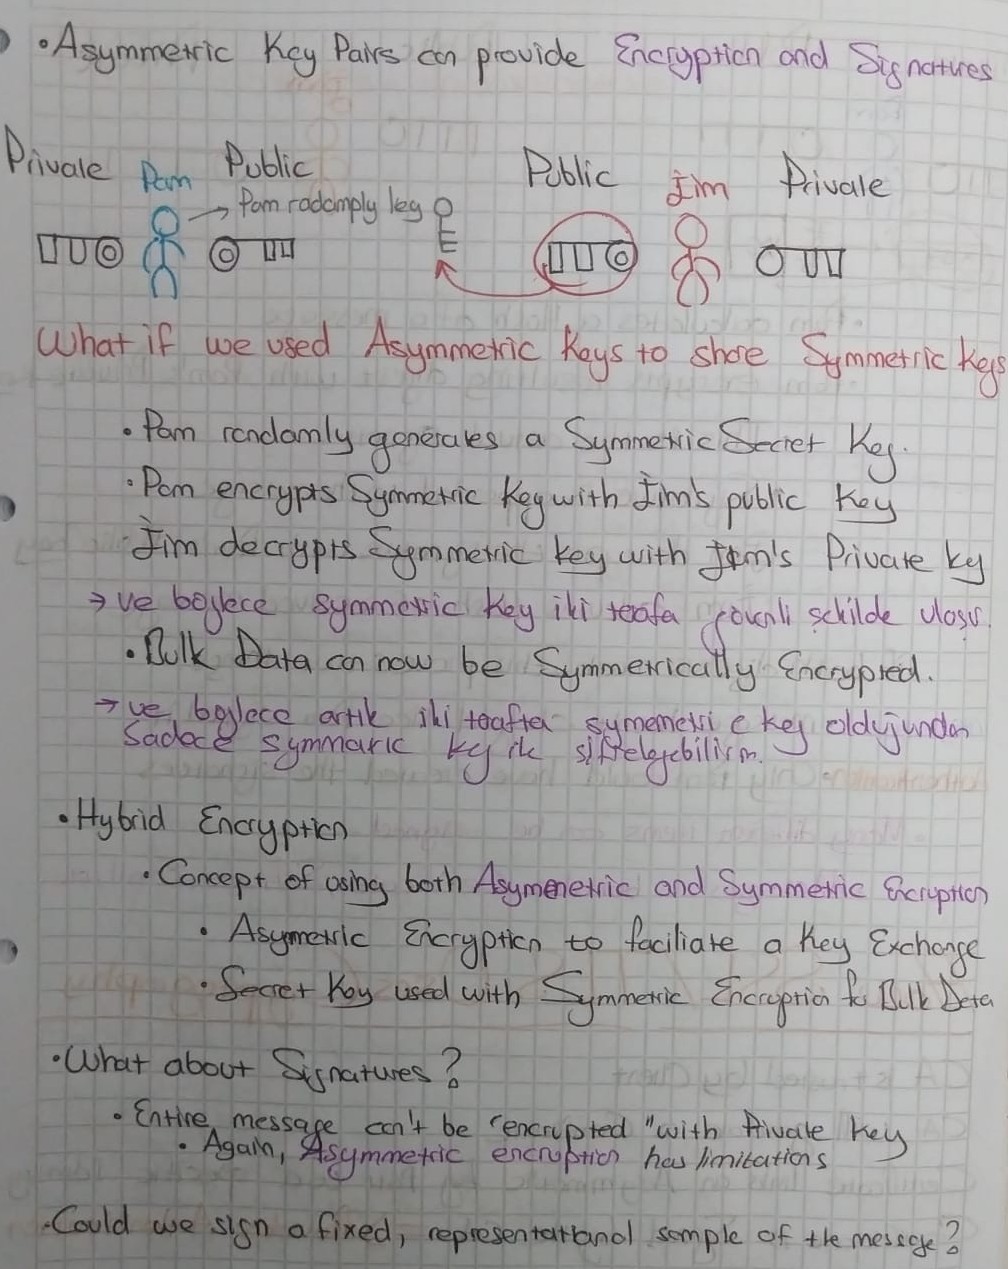 • Asymmetric Key Pairs can provide Encryption and Signatures
Private Pam Public Public Jim Private
→ Pam radomply key
What if we used Asymmetric Keys to share Symmetric keys
• Pam randomly generates a Symmetric Secret Key.
• Pam encrypts Symmetric Key with Jim's public Key
• Jim decrypts Symmetric key with Jim's Private ky
→ ve boylece symmetric Key iki tarafa şekilde ulaşır.
• Bulk Data can now be Symmetrically Encrypted.
→ ve boylece artık iki tarafta key olduğundan
Sadece key ile
• Hybrid Encryption
• Concept of using both Asymenetric and Symmetric Ecruption
• Asymetric Encryption to faciliate a Key Exchange
• Secret Key used with Symmetric Encryption to Bulk Data
• What about Signatures?
• Entire message can't be "encrupted" with Private key
• Again, Asymmetric encruption has limitations
• Could we sign a fixed, representational sample of the message?